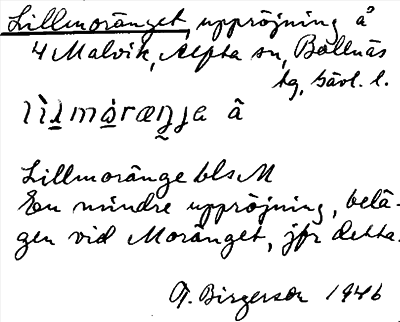 Lillmoränget, uppröjning å
4 Malvik, Alfta sn, Bollnäs
tg, Gävl. l.
Lillmoränge bls M
En mindre uppröjning, belä-
gen vid Moränget, jfr detta.
A. Birgerson 1946